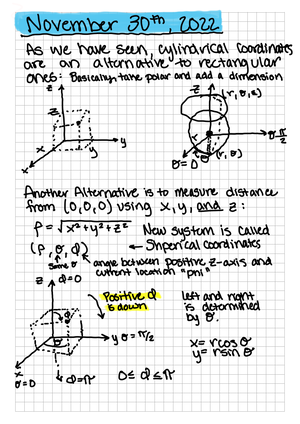 November 30th, 2022
As we have seen, cylindrical coordinates
are an alternative to rectangular
ones: Basically, take polar and add a dimension
z
z
x
y
y
z
(r, θ, z)
θ π/2
θ=0
θ
(r, θ)
Another Alternative is to measure distance
from (0,0,0) using x, y, and z:
ρ = √x²+y²+z²
New system is called
← Shperical coordinates
(ρ, θ, φ)
Same θ
angle between positive z-axis and
current location "phi"
z
φ=0
Positive φ
is down
left and right
is determined
by θ.
φ
θ
y θ=π/2
x
θ=0
φ=π
0≤ φ ≤π
x= rcosθ
y= rsinθ